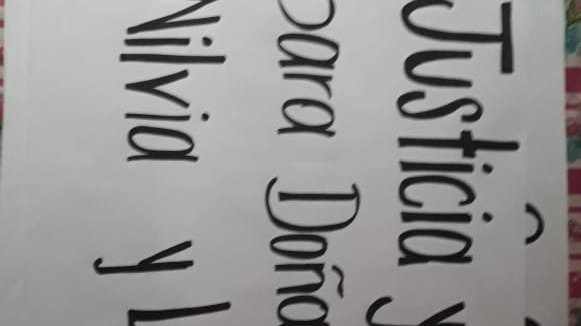 Justicia y
para Doña
Nilvia y L